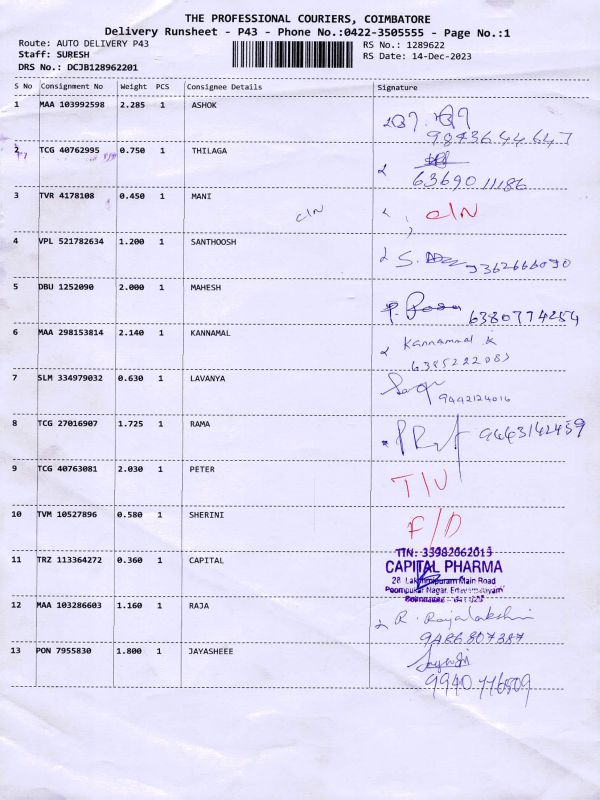 THE PROFESSIONAL COURIERS, COIMBATORE
Delivery Runsheet - P43 - Phone No.:0422-3505555 - Page No.:1
Route: AUTO DELIVERY P43 RS No.: 1289622
Staff: SURESH RS Date: 14-Dec-2023
DRS No.: DCJB128962201
S No Consignment No Weight PCS Consignee Details Signature
1 MAA 103992598 2.285 1 ASHOK
98436 44647
2 TCG 40762995 0.750 1 THILAGA
6369011186
3 TVR 4178108 0.450 1 MANI C/N C/N
4 VPL 521782634 1.200 1 SANTHOOSH S. 9362666090
5 DBU 1252090 2.000 1 MAHESH 6380774254
6 MAA 298153814 2.140 1 KANNAMAL Kannammal K
6385222083
7 SLM 334979032 0.630 1 LAVANYA 9442124016
8 TCG 27016907 1.725 1 RAMA 9443142459
9 TCG 40763081 2.030 1 PETER T/U
10 TVM 10527896 0.580 1 SHERINI F/D
11 TRZ 113364272 0.360 1 CAPITAL
TIN: 33982062015
CAPITAL PHARMA
28 Lakshmipuram Main Road
Poompukar Nagar,
12 MAA 103286603 1.160 1 RAJA R. Rajalakshmi
9486807387
13 PON 7955830 1.800 1 JAYASHEEE
9940776809